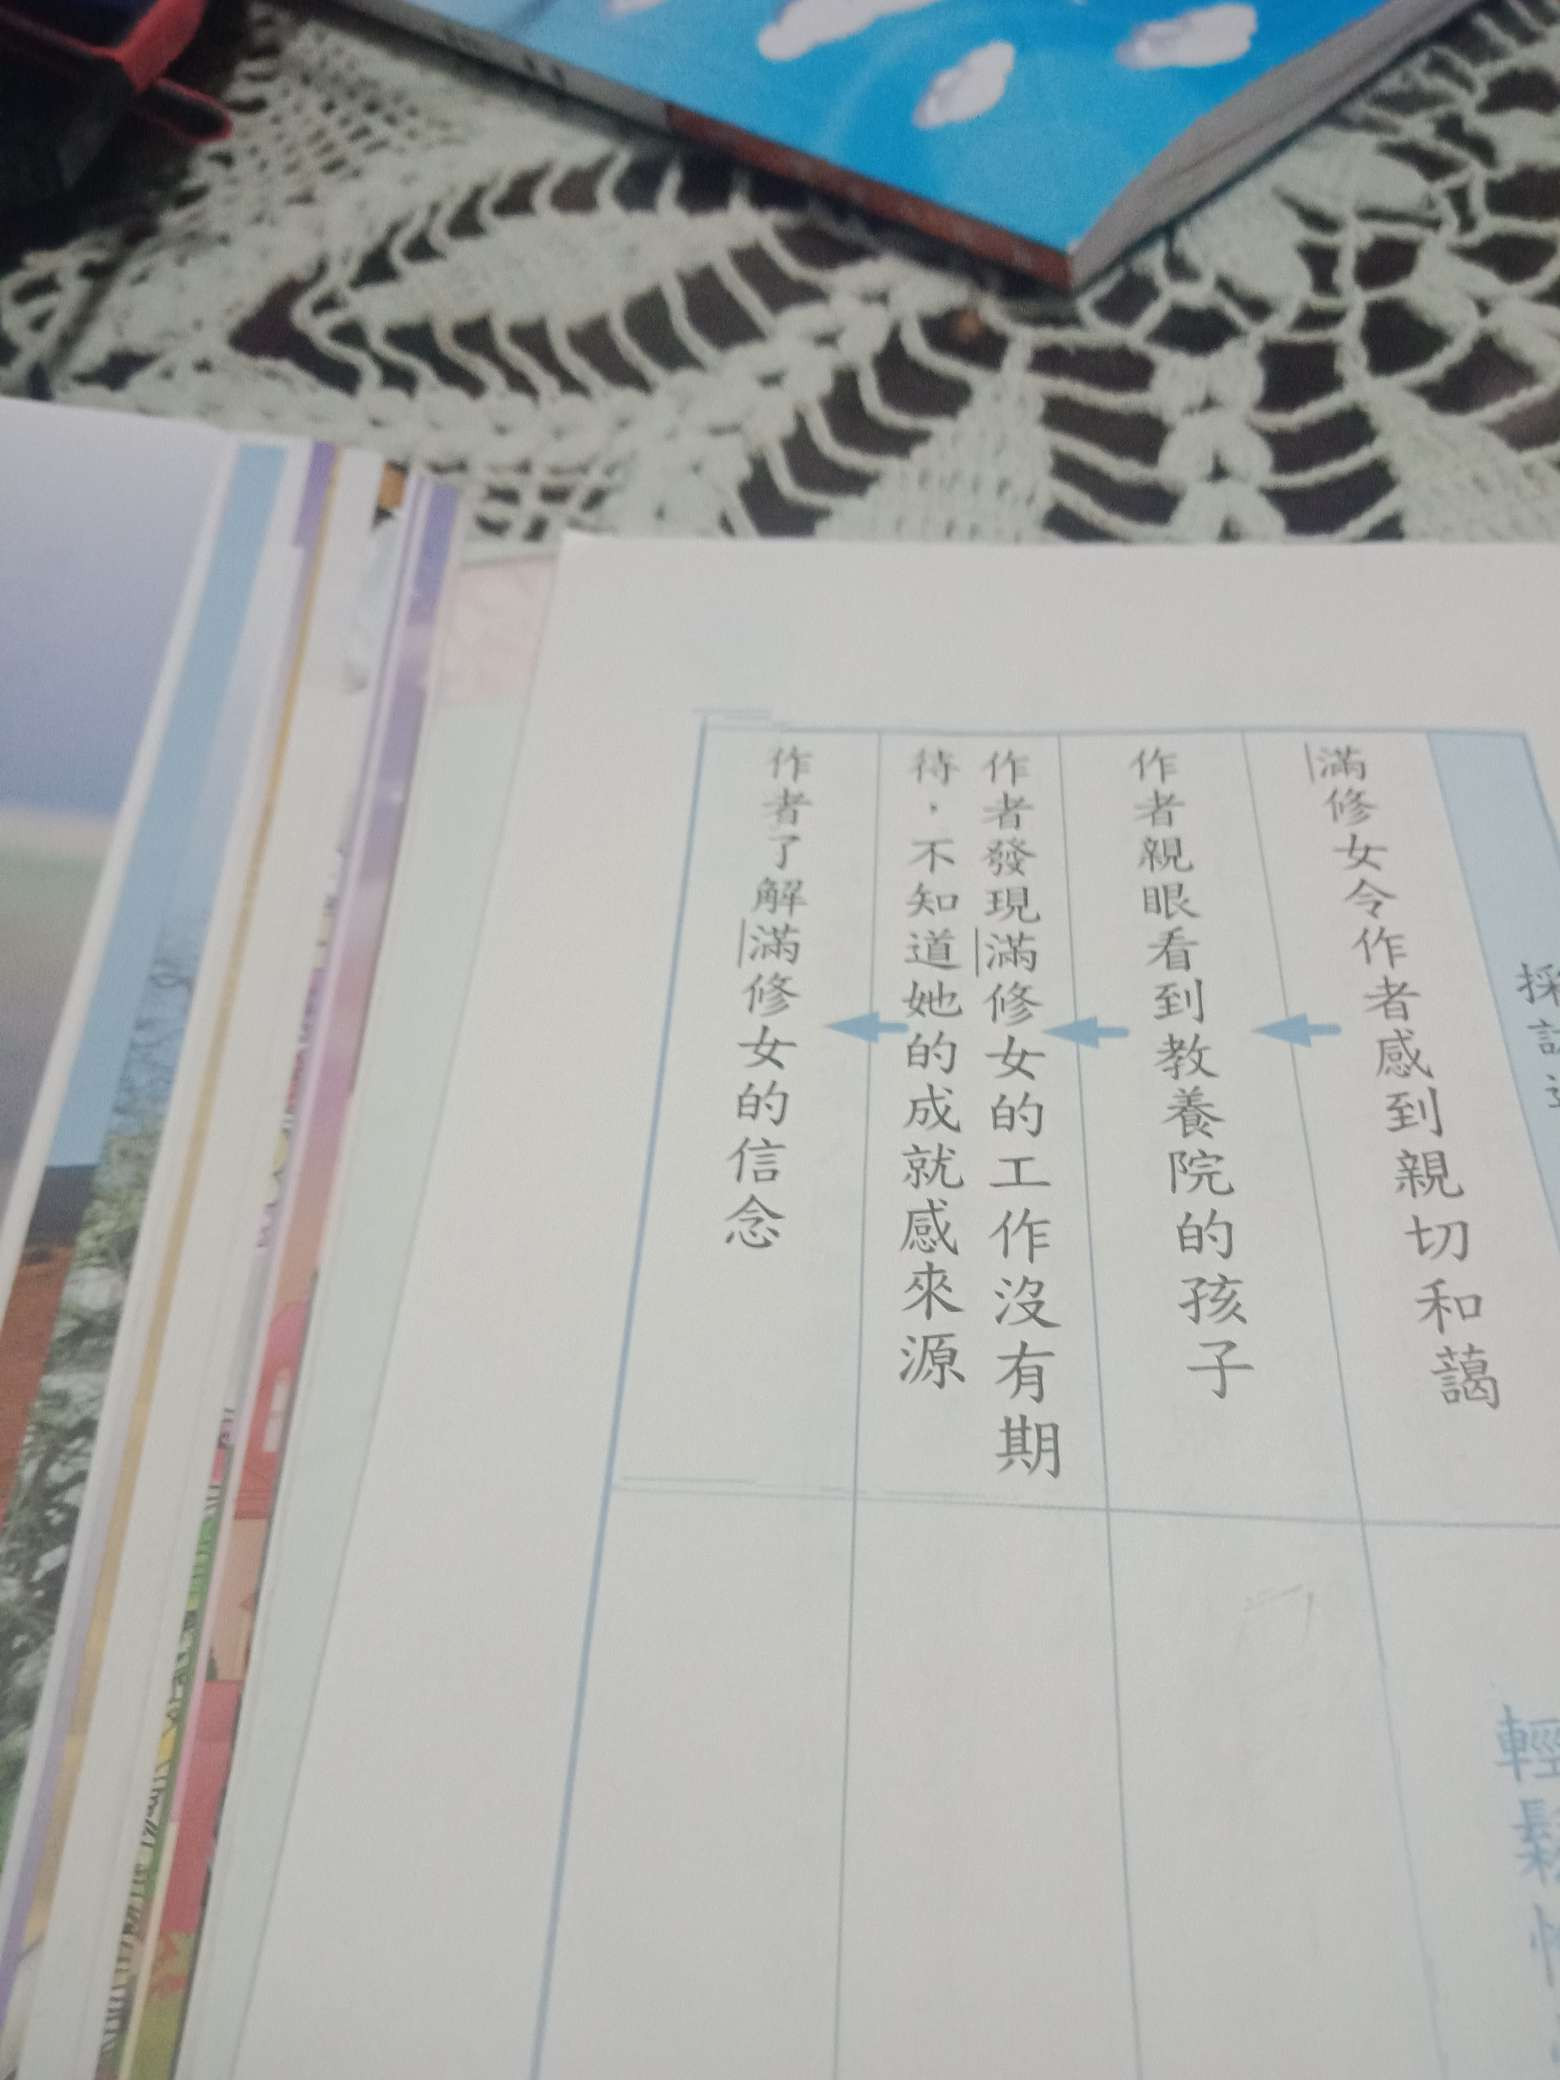 採訪
滿修女令作者感到親切和藹
作者親眼看到教養院的孩子
作者發現滿修女的工作沒有期
待，不知道她的成就感來源
作者了解滿修女的信念
輕鬆